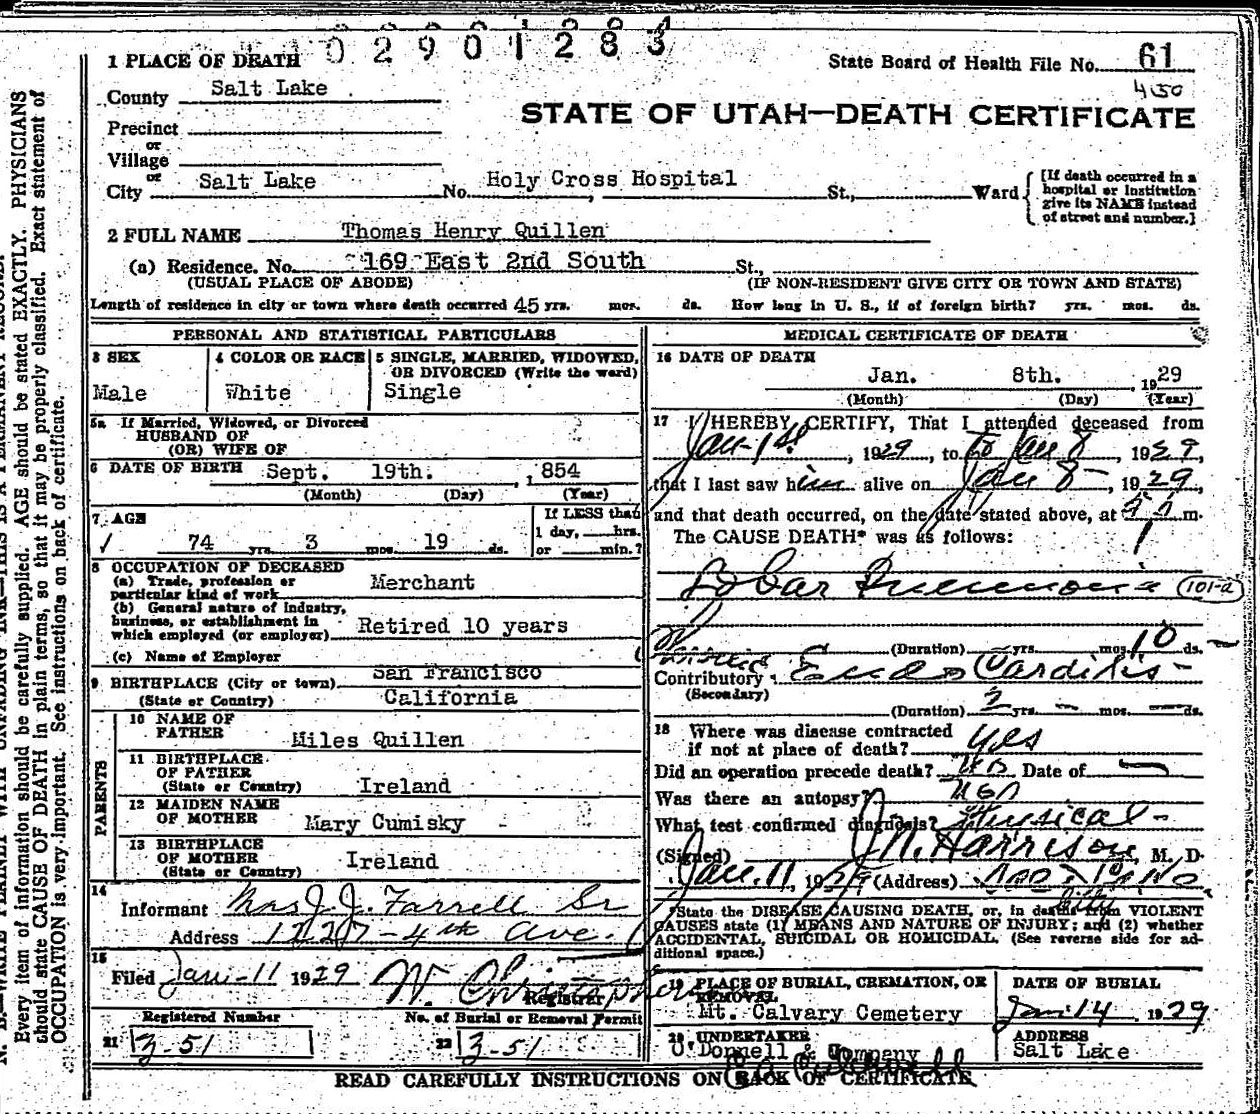 02901283
1 PLACE OF DEATH
State Board of Health File No. 61
450
County Salt Lake
STATE OF UTAH—DEATH CERTIFICATE
Precinct
or
Village
or
City Salt Lake No. Holy Cross Hospital St., Ward
[If death occurred in a
hospital or institution
give its NAME instead
of street and number.]
2 FULL NAME Thomas Henry Quillen
(a) Residence. No. 169 East 2nd South St.,
(USUAL PLACE OF ABODE) (IF NON-RESIDENT GIVE CITY OR TOWN AND STATE)
Length of residence in city or town where death occurred 45 yrs. mos. ds. How long in U. S., if of foreign birth? yrs. mos. ds.
PERSONAL AND STATISTICAL PARTICULARS
3 SEX
Male
4 COLOR OR RACE
White
5 SINGLE, MARRIED, WIDOWED,
OR DIVORCED (Write the word)
Single
5a If Married, Widowed, or Divorced
HUSBAND OF
(OR) WIFE OF
6 DATE OF BIRTH Sept. 19th. 1854
(Month) (Day) (Year)
7 AGE
74 yrs. 3 mos. 19 ds.
If LESS than
1 day, hrs.
or min.?
8 OCCUPATION OF DECEASED
(a) Trade, profession or
particular kind of work Merchant
(b) General nature of industry,
business, or establishment in
which employed (or employer) Retired 10 years
(c) Name of Employer
9 BIRTHPLACE (City or town) San Francisco
(State or Country) California
PARENTS
10 NAME OF
FATHER Miles Quillen
11 BIRTHPLACE
OF FATHER
(State or Country) Ireland
12 MAIDEN NAME
OF MOTHER Mary Cumisky
13 BIRTHPLACE
OF MOTHER
(State or Country) Ireland
14
Informant Mrs J. J. Farrell Sr
Address 1227-4th Ave.
15
Filed Jan-11 1929 W. Christopherson
Registrar
Registered Number
21 3-51
No. of Burial or Removal Permit
22 3-51
MEDICAL CERTIFICATE OF DEATH
16 DATE OF DEATH
Jan. 8th. 1929
(Month) (Day) (Year)
17 I HEREBY CERTIFY, That I attended deceased from
Jan-1st, 1929, to Jan 8 1929,
that I last saw him alive on Jan 8-, 1929,
and that death occurred, on the date stated above, at m.
The CAUSE DEATH* was as follows:
Lobar Pneumonia 101-a
(Duration) yrs. mos. 10 ds.
Contributory Endo Carditis-
(Secondary)
(Duration) 2 yrs. - mos. - ds.
18 Where was disease contracted
if not at place of death? yes
Did an operation precede death? No Date of —
Was there an autopsy?
What test confirmed diagnosis? Physical-
(Signed) J. N. Harrison, M. D.
Jan. 11, 1929 (Address)
*State the DISEASE CAUSING DEATH, or, in deaths from VIOLENT
CAUSES state (1) MEANS AND NATURE OF INJURY; and (2) whether
ACCIDENTAL, SUICIDAL OR HOMICIDAL. (See reverse side for ad-
ditional space.)
19 PLACE OF BURIAL, CREMATION, OR
REMOVAL
Mt. Calvary Cemetery
DATE OF BURIAL
Jan 14 1929
20 UNDERTAKER
O'Donnell & Company
ADDRESS
Salt Lake
READ CAREFULLY INSTRUCTIONS ON BACK OF CERTIFICATE
Every item of information should be carefully supplied. AGE should be stated EXACTLY. PHYSICIANS
should state CAUSE OF DEATH in plain terms, so that it may be properly classified. Exact statement of
OCCUPATION is very important. See instructions on back of certificate.